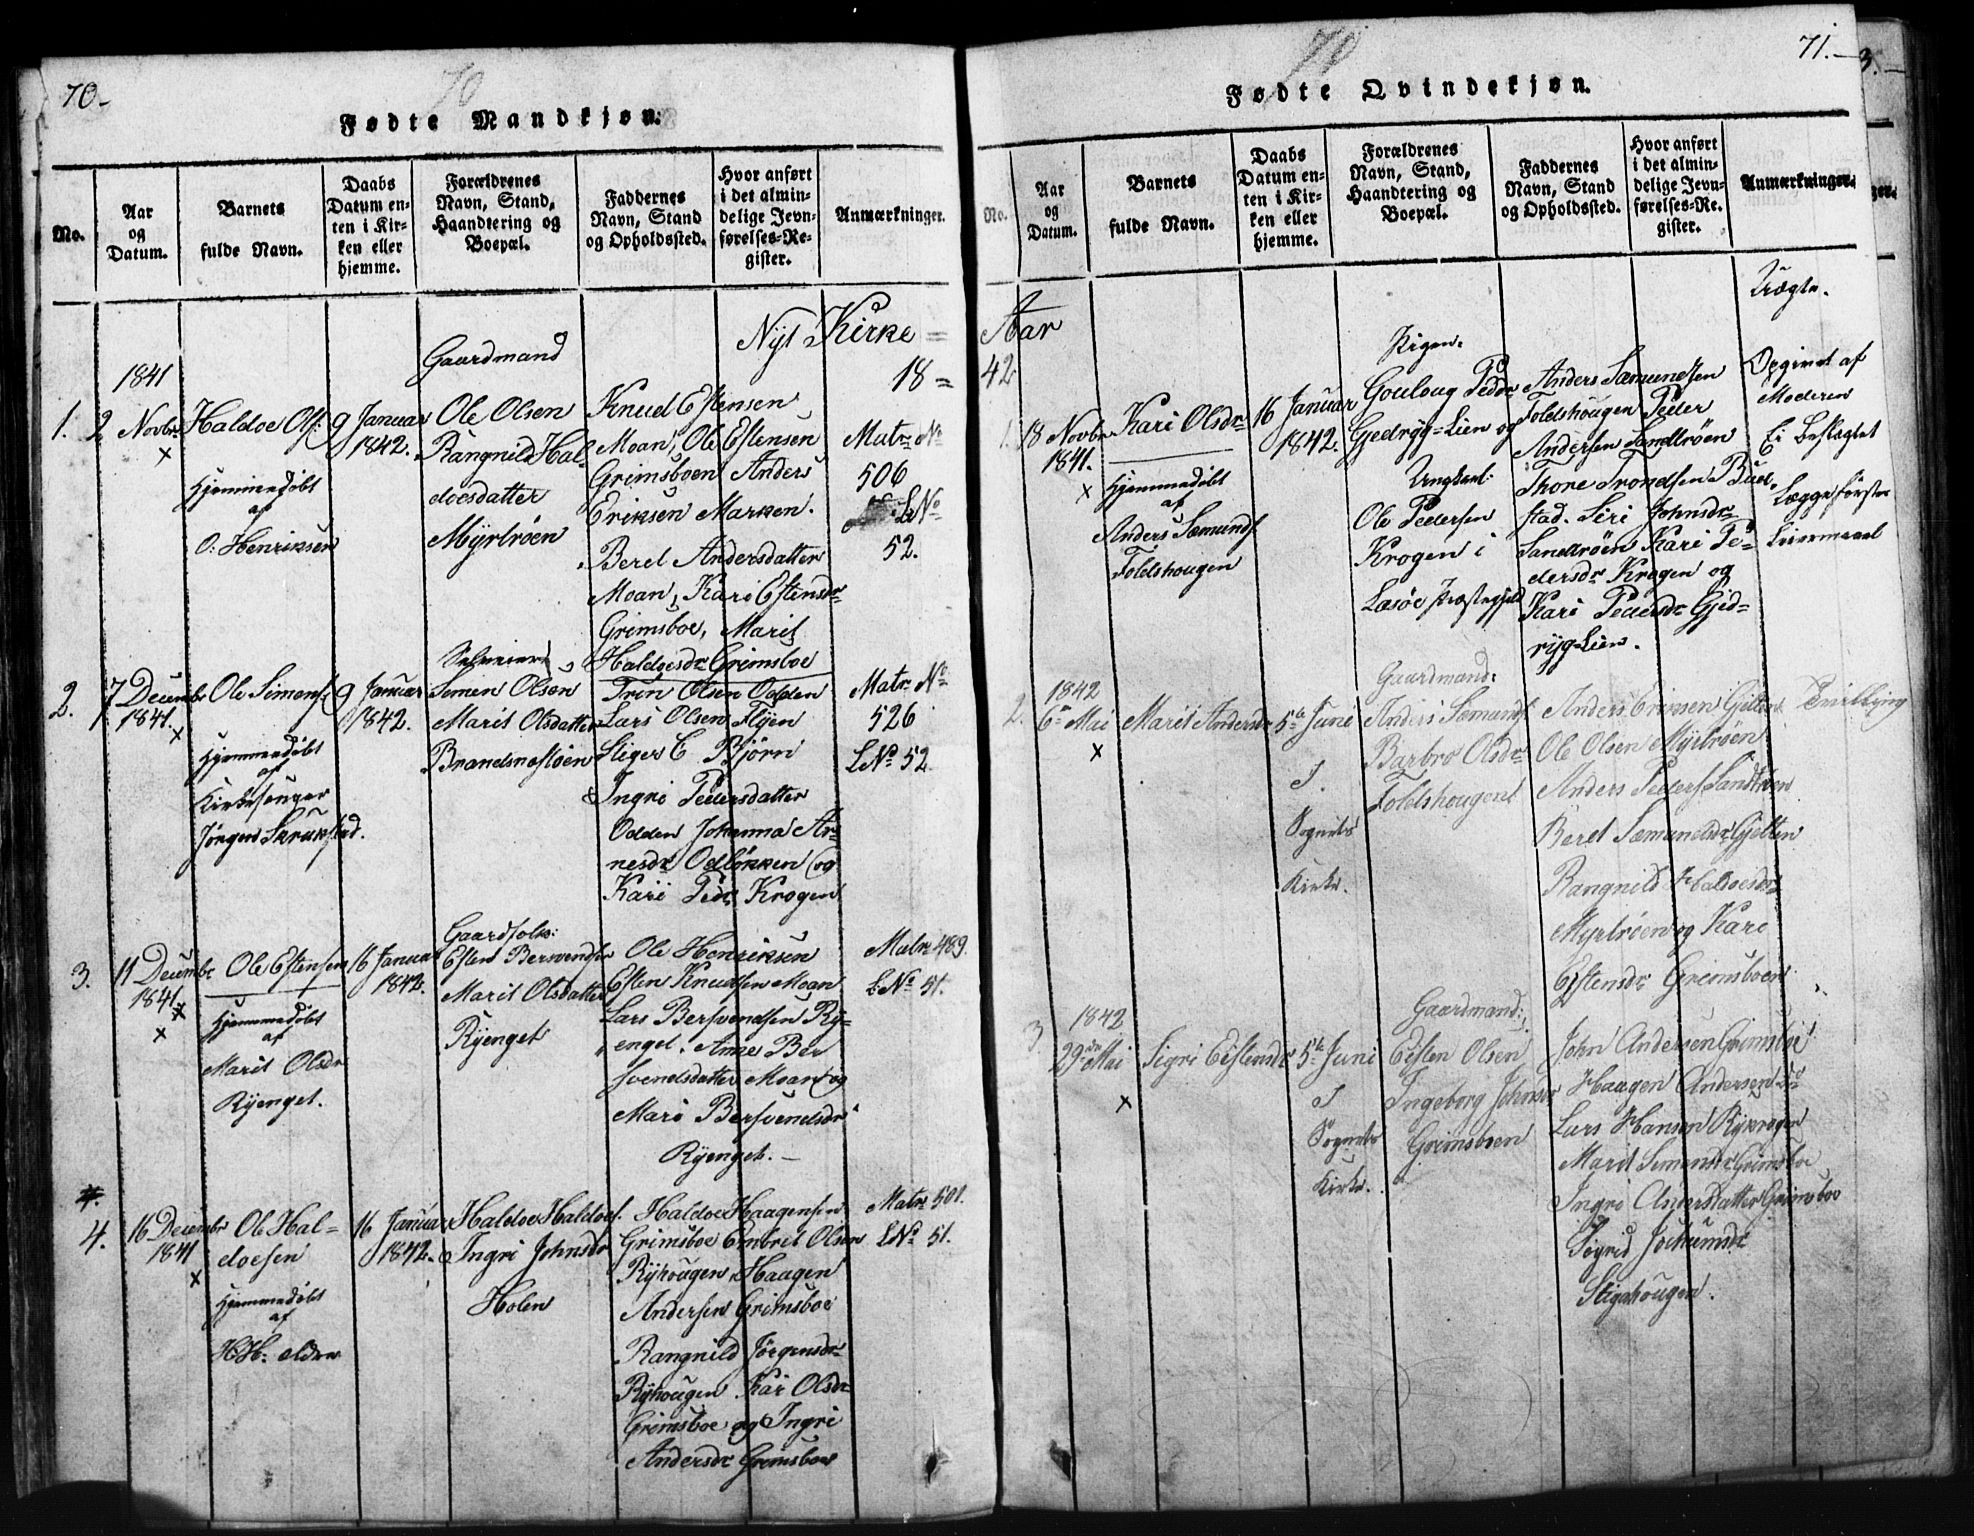 70.
70
Fødte Mandkjøn.
No.
Aar
og
Datum.
Barnets
fulde Navn.
Daabs
Datum en-
ten i Kir-
ken eller
hjemme.
Forældrenes
Navn, Stand,
Haandtering og
Boepæl.
Faddernes
Navn, Stand
og Opholdssted.
Hvor anført
i det almin-
delige Jevn-
førelses-Re-
gister.
Anmærkninger.
Nyt Kirke =
18 =
1.
1841
2 Novbr
x
Haldoe Ols:
Hjemmedøbt
af
O: Henriksen
9 Januar
1842.
Gaardmand
Ole Olsen
Rangnild Hal-
doesdatter
Myrtrøen
Knud Estensen
Moan, Ole Estensen
Grimsboen Anders
Eriksen Marken.
Beret Andersdatter
Moan, Kari Estensdr
Grimsboe, Marit
Haldoesdr Grimsboe
Matr No
506
LNo
52.
2.
7 Decembr
1841.
x
Ole Simens:
Hjemmedøbt
af
Kirkesanger
Jørgen Skrukstad.
9 Januar
1842.
Selveier
Simen Olsen
Marit Olsdatter
Brandsnesløen
Trøn Olsen Odden
Lars Olsen Flyen
Stiger C Bjørn
Ingri Pedersdatter
Odden Johanna Ar-
nesdr Odløkken og
Kari Pedr Krogen
Matr No
526
LNo 52
3.
11 Decembr
1841.
x
Ole Estensen
Hjemmedøbt
af
Marit Olsdr
Ryenget.
16 Januar
1842.
Gaardfolk:
Esten Bersvendsen
Marit Olsdatter
Ryenget
Ole Henriksen
Esten Knudsen Moan
Lars Bersvendsen Ry-
enget. Anne Ber
svendsdatter Moan og
Mari Bersvendsdr
Ryenget. —
Matr 489.
LNo 51.
4.
16 Decembr
1841
x
Ole Hal-
doesen
Hjemmedøbt
af
HH: ældre
16 Januar
1842.
Haldoe Haldoes.
Ingri Johnsdr
Holen
Haldoe Haagensen
Grimsboe Embret Olsen
Ryhougen, Haagen
Andersen Grimsboe
Rangnild Jørgensdr
Ryhougen Kari Olsdr
Grimsboe og Ingri
Andersdr Grimsboe
Matr 501.
LNo 51.
71.
70
Fødte Qvindekjøn.
No.
Aar
og
Datum.
Barnets
fulde Navn.
Daabs
Datum en-
ten i Kir-
ken eller
hjemme.
Forældrenes
Navn, Stand,
Haandtering og
Boepæl.
Faddernes
Navn, Stand
og Opholdssted.
Hvor anført
i det almin-
delige Jevn-
førelses-Re-
gister.
Anmærkninger.
Aar
42
1.
18 Novbr
1841.
x
Kari Olsdr
Hjemmedøbt
af
Anders Sæmunds
Foldshougen
16 Januar
1842.
Pigen
Gouloug Pedr
Gjedryg=Lien og
Ungkarl:
Ole Pedersen
Krogen i
Læsøe Præstegjeld
Anders Sæmundsen
Foldshougen Peder
Andersen Sandtrøen
Thore Trondsen Bud-
stad. Siri Johnsdr
Sandtrøen Kari Pe-
dersdr Krogen og
Kari Pedersdr Gjed-
ryg=Lien.
Uægte.
Opgivet af
Moderen
Ei beslægtet
begge første
Leiermaal
2.
1842
6 Mai
x
Marit Andersdr
5te Juni
I
Sognets
Kirke.
Gaardmand:
Anders Sæmunds
Barbro Olsdr
Foldshougen
Anders Eriksen Gjelten
Ole Olsen Myrtrøen
Anders Peders Sandtrøen
Beret Sæmundsdr Gjelten
Rangnild Haldoesdr
Myrtrøen og Kari
Estensdr Grimsboen
Tvilling
3.
1842
29de Mai
x
Sigri Eistensdr
5te Juni
I
Sognets
Kirke.
Gaardmand:
Eisten Olsen
Ingeborg Johnsdr
Grimsboen
John Andersen Grimsboe
Haagen Andersen Do
Lars Hansen Rykrogen
Marit Simensdr Grimsboe
Ingri Andersdatter Grimsboe
Sigrid Jochumsdr
Stigshougen.